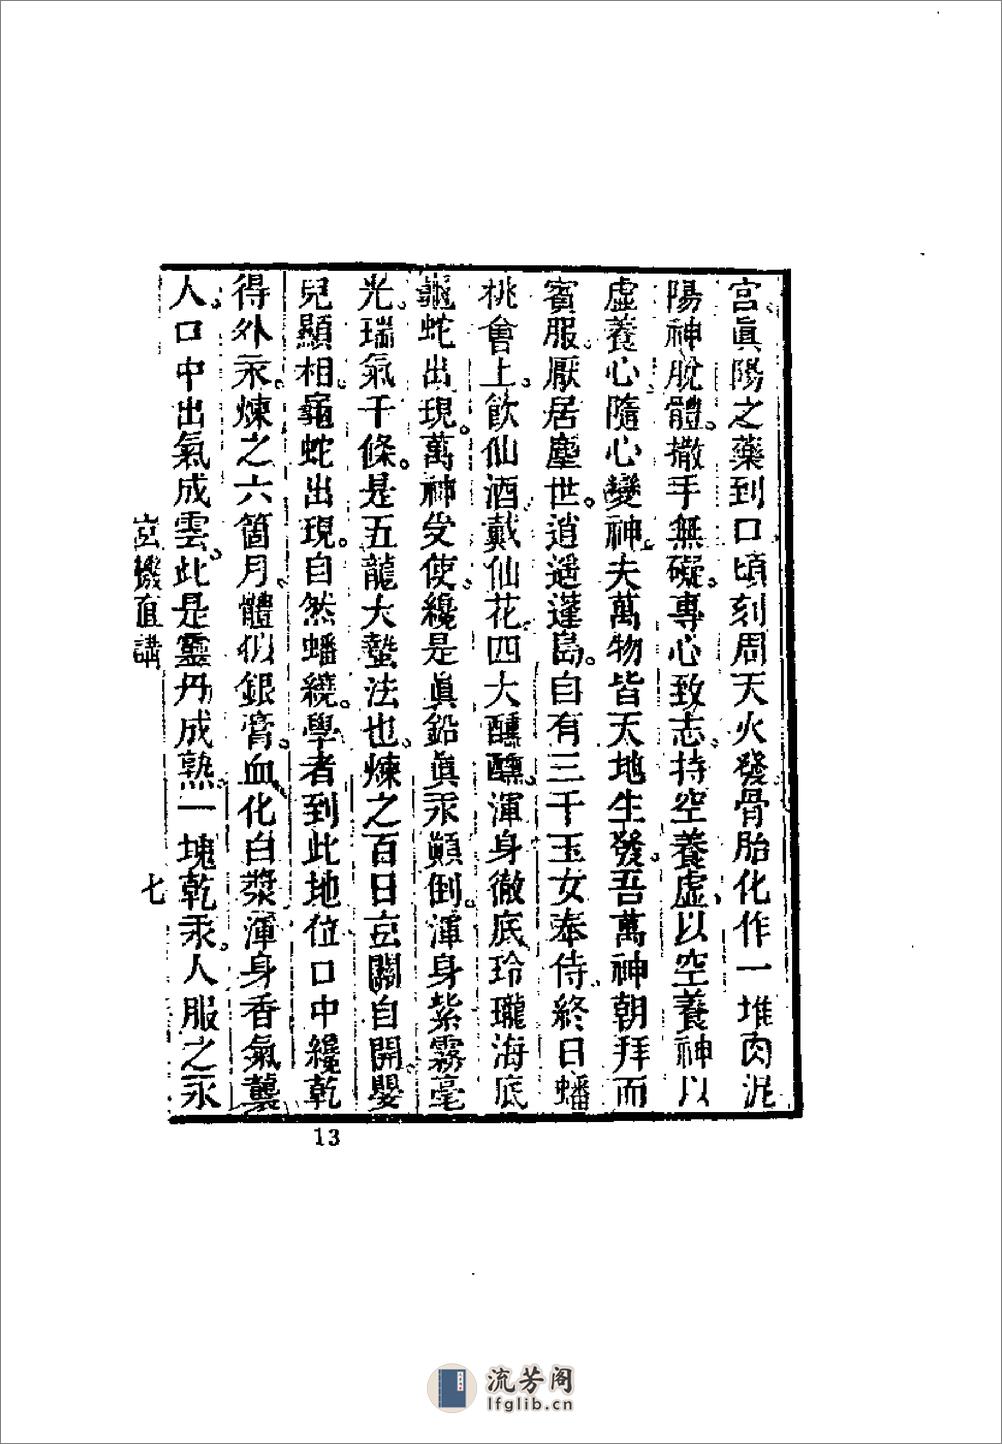 宮。眞陽之藥到口。頃刻周天火發。骨胎化作一堆肉泥
陽神脫體。撒手無礙。專心致志。持空養虛。以空養神。以
虛養心。隨心變神。夫萬物皆天地生發。吾萬神朝拜而
賓服。厭居塵世。逍遥蓬島。自有三千玉女奉侍。終日蟠
桃會上。飲仙酒戴仙花。四大醺醺。渾身徹底玲瓏。海底
龜蛇出現。萬神受使。纔是眞鉛眞汞顚倒。渾身紫霧毫
光。瑞氣千條。是五龍大蟄法也。煉之百日。玄關自開。嬰
兒顯相。龜蛇出現。自然蟠繞。學者到此地位。口中纔乾
得外汞。煉之六箇月。體似銀膏。血化白漿。渾身香氣襲
人。口中出氣成雲。此是靈丹成熟。一塊乾汞。人服之永
玄機直講
七
13
流芳阁
lfglib.cn